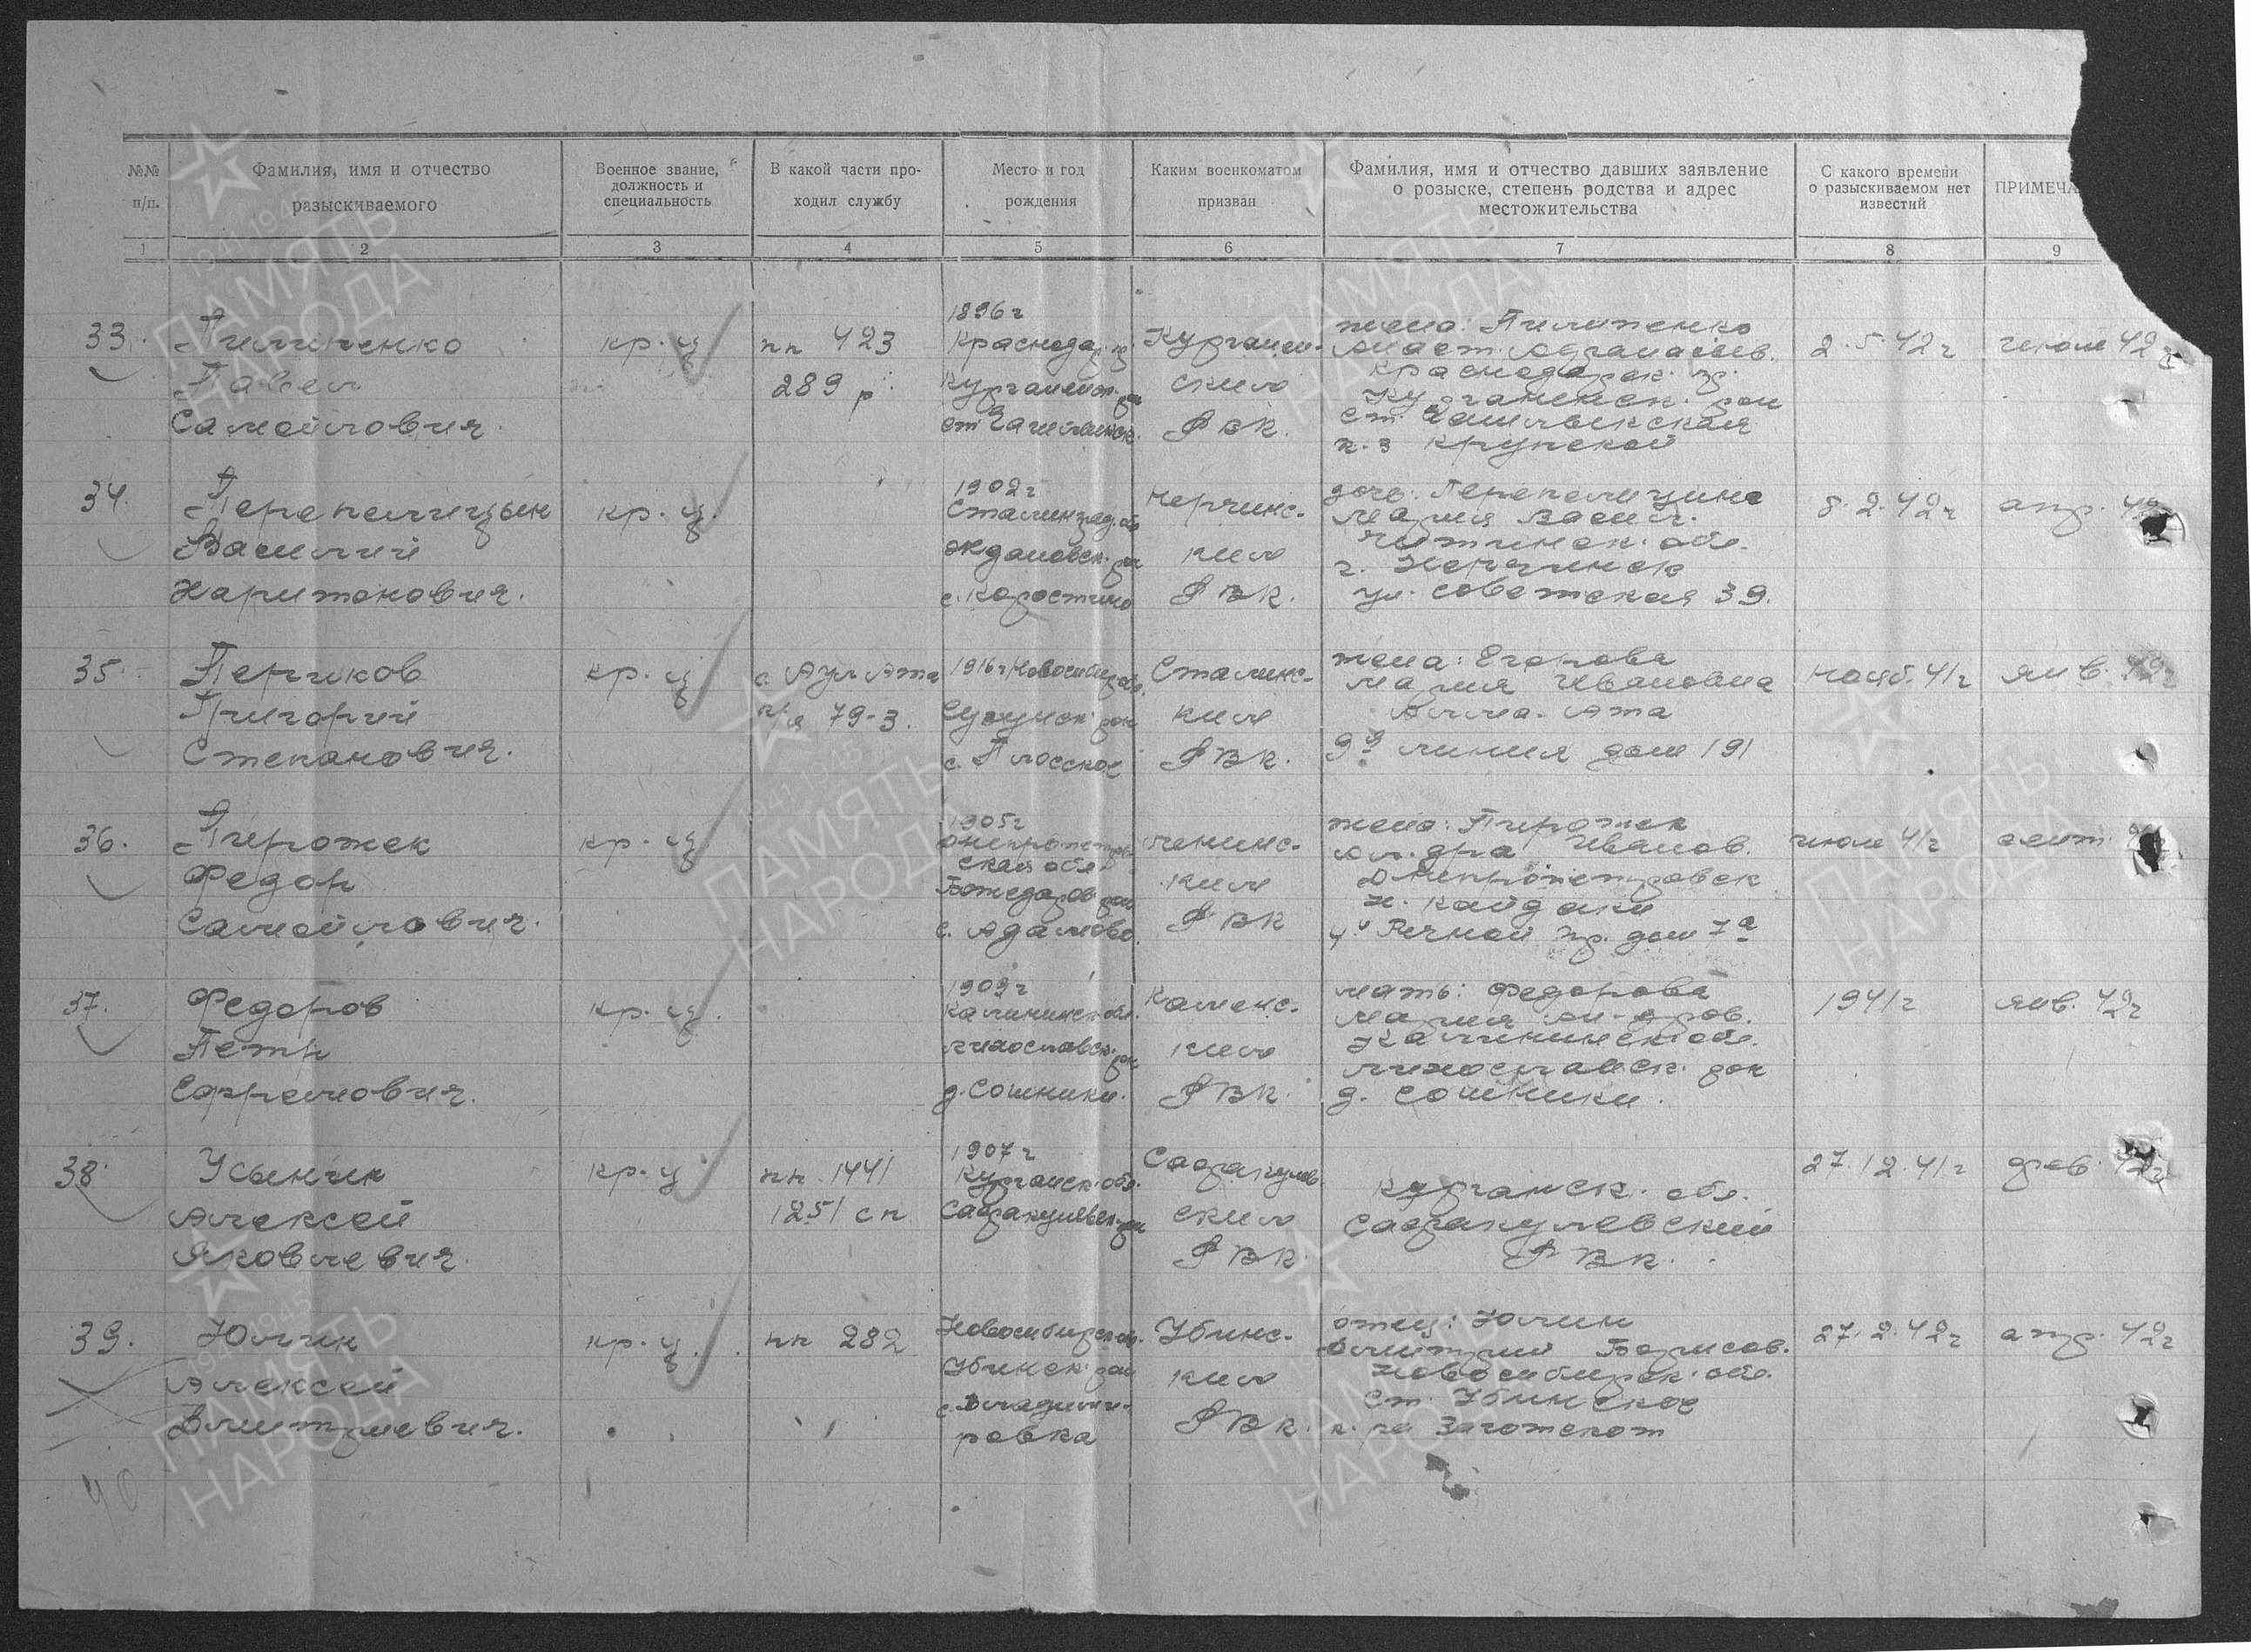 №№ п/п.
Фамилия, имя и отчество разыскиваемого
Военное звание, должность и специальность
В какой части проходил службу
Место и год рождения
Каким военкоматом призван
Фамилия, имя и отчество давших заявление о розыске, степень родства и адрес местожительства
С какого времени о разыскиваемом нет известий
ПРИМЕЧА
1 2 3 4 5 6 7 8 9
33. Пилипенко
Павел
Самойлович.
кр-ц
пп 423
289 р
1896 г
Краснодар. кр
Курганенск. рн
ст Чамлыкск.
Курганен-
ским
РВК.
жена: Пилипенко
Анаст. Афанасьев.
Краснодарск. кр.
Курганенск. рон
ст. Чамлыкская
к-з Крупской
2.5.42 г
июль 42 г
34. Перепелицын
Василий
Харитонович.
кр-ц.
1902 г
Сталинград. обл
Ждановск. рн
с. Коростино
Нерчинс-
ким
РВК.
дочь: Перепелицина
Мария Васил.
Читинск. обл.
г. Нерчинск
ул. Советская 39.
8.2.42 г
апр. 42
35. Перчиков
Григорий
Степанович.
кр-ц
г. Аул Ата
п/я 79-3.
1916 г Новосибир. обл.
Сузунск. рон
с. Плосское
Сталинс-
ким
РВК.
жена: Егорова
Мария Ивановна
Алма-Ата
9я линия дом 191
нояб. 41 г
янв. 42 г
36. Пирожек
Федор
Самойлович.
кр-ц
1905 г
Днепропетров-
ская обл.
Божедаров. рон
с. Адамово.
Ленинс-
ким
РВК
жена: Пирожек
Ал-дра Иванов.
Днепропетровск
н. Кайдаки
ул Речной пр. дом 7а
июль 41 г
сент.
37. Федоров
Петр
Ефремович.
кр-ц.
1909 г
Калининск обл.
Лихославск. рон
д. Сошники.
Каменс-
ким
РВК.
мать: Федорова
Мария Ал-дров.
Калининск обл.
Лихославск. рон
д. Сошники.
1941 г
янв. 42 г
38. Усынин
Алексей
Яковлевич.
кр-ц
пп. 1441
1251 сп
1907 г
Курганск. обл.
Сафакулевск рон
Сафакулев.
ским
РВК.
Курганск. обл.
Сафакулевский
РВК.
27.12.41 г
фев. 42 г
39. Юлин
Алексей
Дмитриевич.
кр-ц.
пп 282
Новосибирск об.
Убинск. рон
с. Владими-
ровка
Убинс-
ким
РВК.
отец: Юлин
Дмитрий Борисов.
Новосибирск. обл.
ст. Убинское
к-ра Заготскот
27.2.42 г
апр. 42 г
40
ПАМЯТЬ НАРОДА
1941-1945